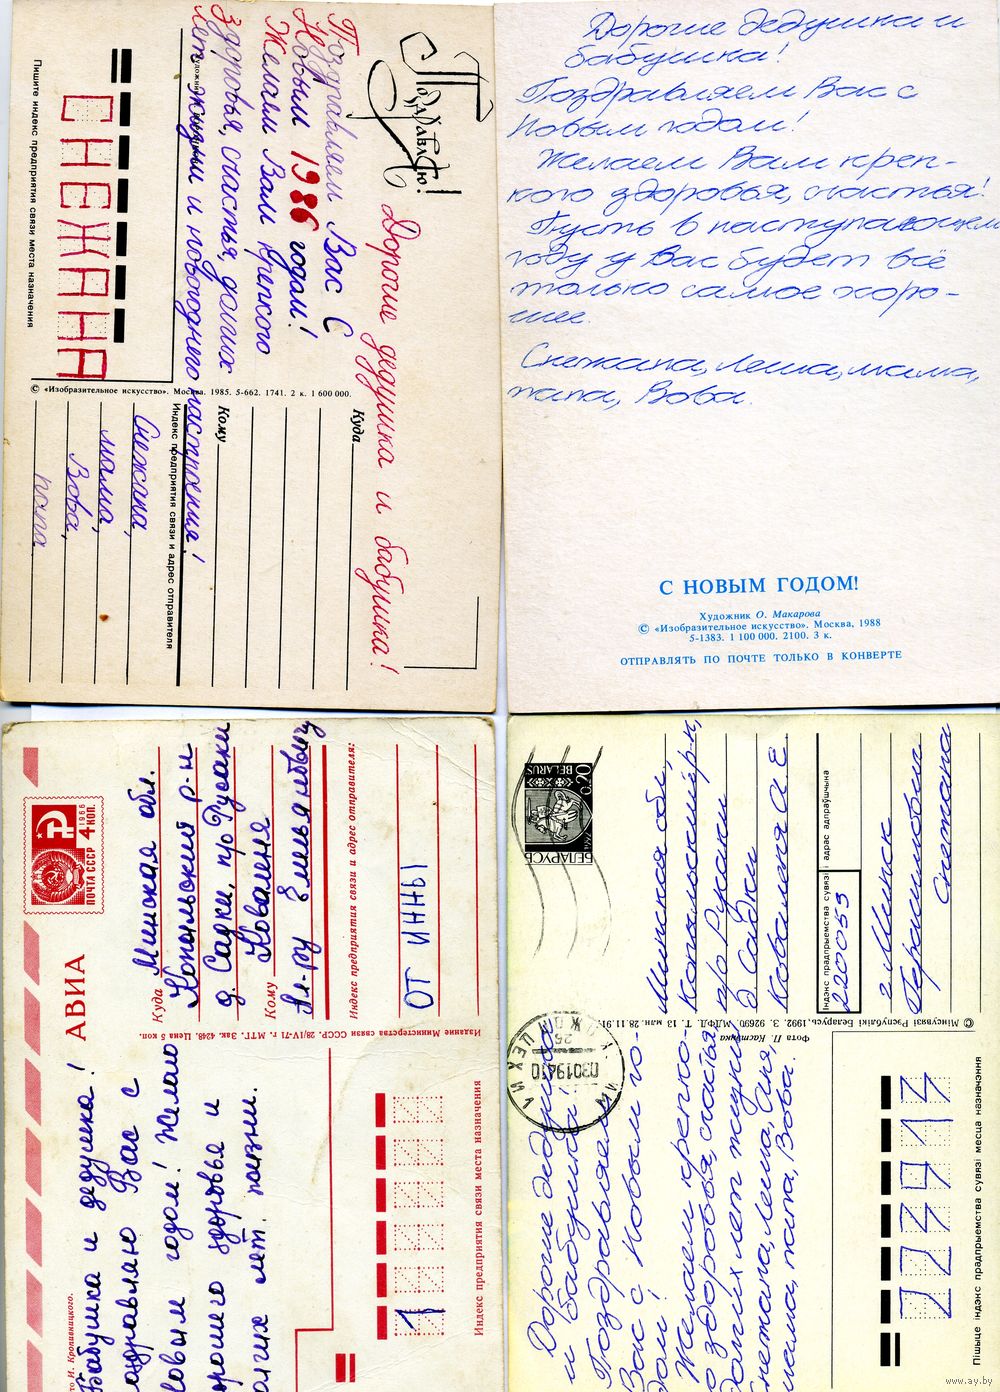 Поздравляю!
Дорогие дедушка и бабушка!
Поздравляем Вас с
Новым 1986 годом!
Желаем Вам крепкого
здоровья, счастья, долгих
лет жизни и новогоднего настроения!
СНЕЖАНА
Пишите индекс предприятия связи места назначения
© «Изобразительное искусство». Москва. 1985. 5-662. 1741. 2 к. 1 600 000.
Куда
Кому
Индекс предприятия связи и адрес отправителя
Снежана,
мама,
Вова,
папа
Дорогие дедушка и
бабушка!
Поздравляем Вас с
Новым годом!
Желаем Вам креп-
кого здоровья, счастья!
Пусть в наступающем
году у Вас будет всё
только самое хоро-
шее.
Снежана, Леша, мама,
папа, Вова.
С НОВЫМ ГОДОМ!
Художник О. Макарова
© «Изобразительное искусство». Москва, 1988
5-1383. 1 100 000. 2100. 3 к.
ОТПРАВЛЯТЬ ПО ПОЧТЕ ТОЛЬКО В КОНВЕРТЕ
1966
4 КОП.
ПОЧТА СССР
АВИА
Куда Минская обл.
Копыльский р-н
д. Садки, п/о Русаки
Кому Коваленя
Ал-ру Емельяновичу
Индекс предприятия связи и адрес отправителя:
ОТ ИННЫ
Издание Министерства связи СССР. 28/I-71 г. МТГ. Зак. 4248. Цена 5 коп.
И. Кропивницкого.
Бабушка и дедушка!
оздравляю Вас с
овым годом! Желаю
орошего здоровья и
олгих лет жизни.
1
Индекс предприятия связи места назначения
BELARUS
0.20
БЕЛАРУСЬ
030194 10
Минская обл.,
Копыльский р-н,
п/о Русаки
д. Садки
Коваленя А Е
Індэкс прадпрыемства сувязі і адрас адпраўшчыка
220053
г. Минск
Снежана
© Мінсувязі Рэспублікі Беларусь, 1992. З. 92690. МДФД. Т. 13 млн. 28.11.91
Фота П. Касцюка
Дорогие дедушка
и бабушка!
Поздравляем
Вас с Новым го-
дом!
Желаем крепко-
о здоровья, счастья,
долгих лет жизни.
нежана, Леша, Аня,
мама, папа, Вова.
Пішыце індэкс прадпрыемства сувязі месца назначэння
www.ay.by